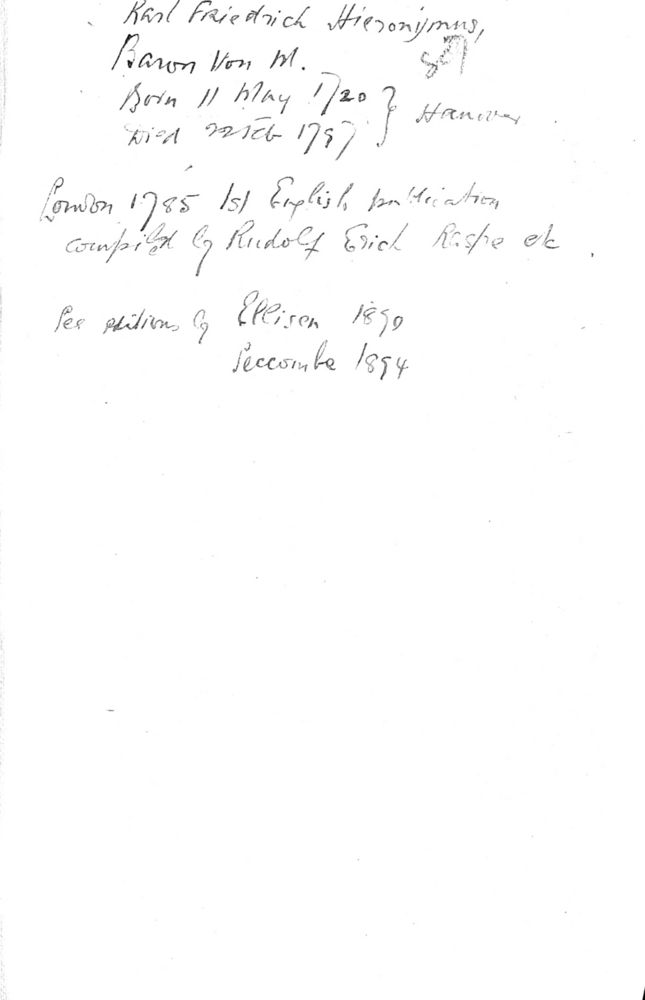 Karl Friedrich Hieronymus,
Baron Von M.
Born 11 May 1720 } Hanover
Died 22 Feb 1797
London 1785 1st English publication
compiled by Rudolf Erich Raspe etc.
See editions by Ellisen 1890
Seccombe 1894